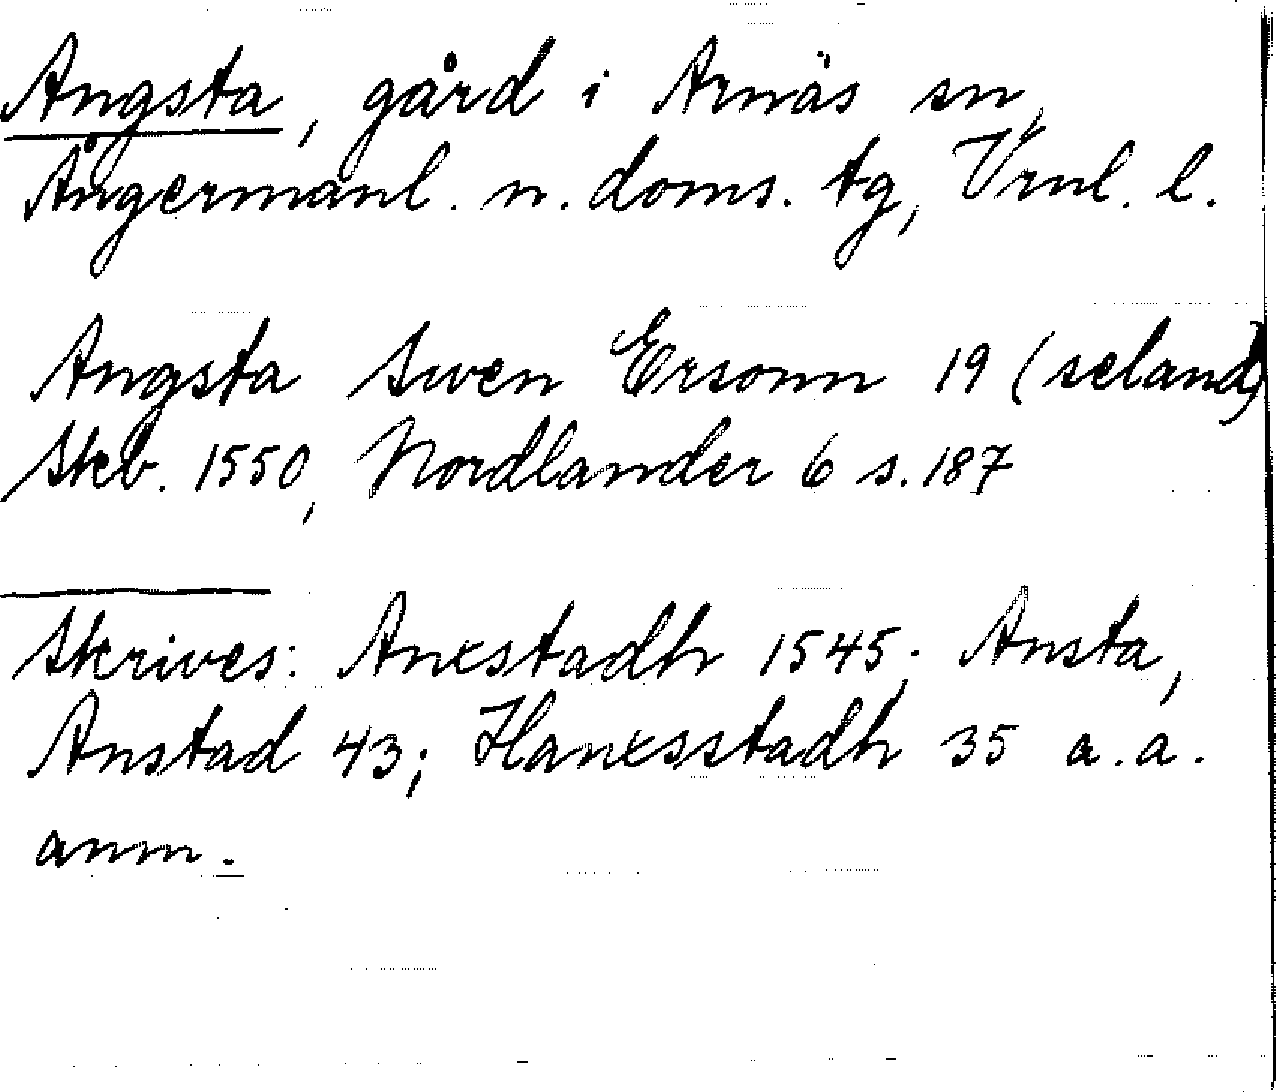 Angsta, gård i Arnäs sn,
Ångermanl. n. doms. tg, Vrnl. l.
Angsta Swen Ersonn 19 (seland)
Skb. 1550, Nordlander 6 s. 187
Skrives: Anxstadh 1545; Ansta,
Anstad 43; Hanxsstadh 35 a.a.
anm.